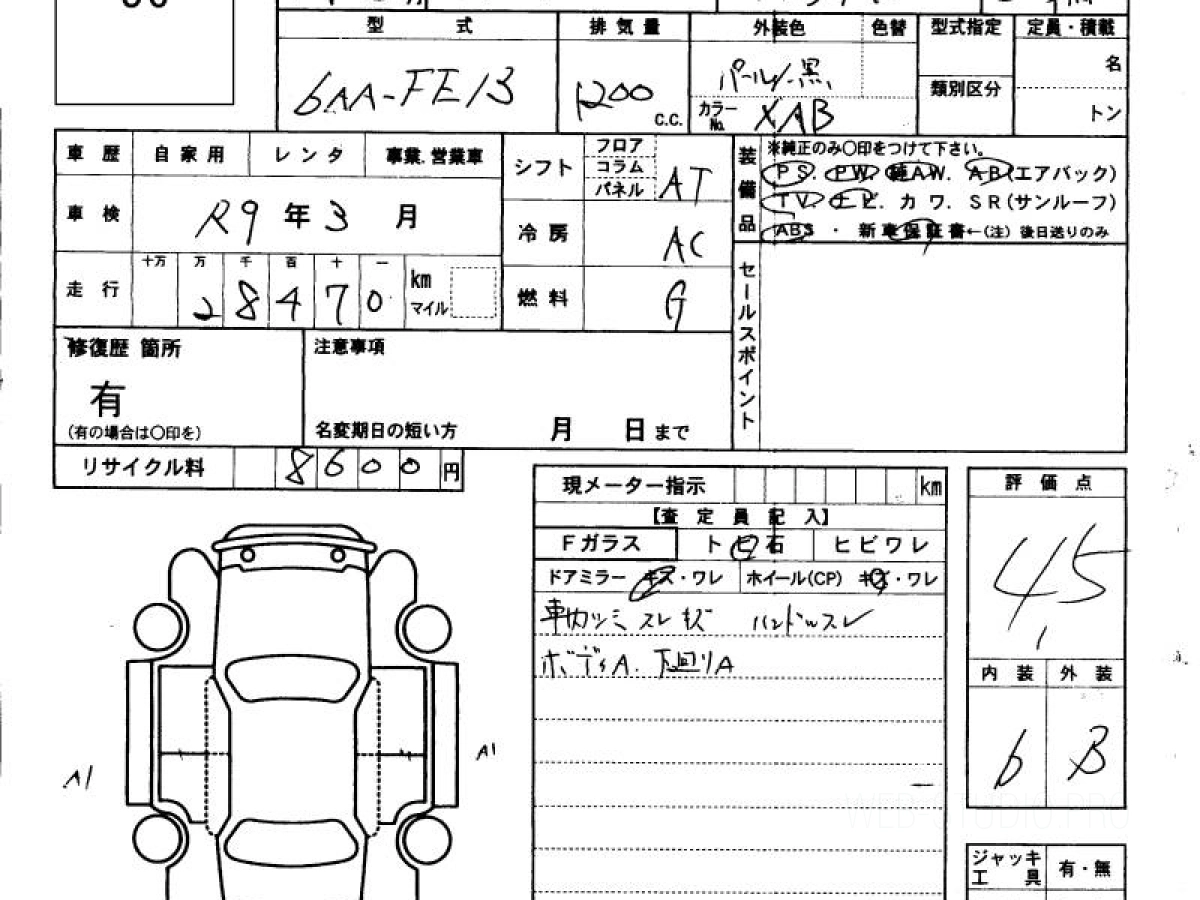 型 式 排気量 外装色 色替 型式指定 定員・積載
6AA-FE13 1200 c.c. パール/黒 類別区分 名
カラーNo. XAB トン
車歴 自家用 レンタ 事業.営業車
シフト フロア コラム パネル AT
装備品 ※純正のみ〇印をつけて下さい。
PS. PW. 純AW. AB(エアバック)
TV ナビ. カワ. SR(サンルーフ)
ABS ・ 新車保証書←(注) 後日送りのみ
車検 R9年3月
冷房 AC
走行 十万 万 千 百 十 一
28470 km マイル
燃料 G
セールスポイント
修復歴 箇所
有
(有の場合は〇印を)
注意事項
名変期日の短い方 月 日まで
リサイクル料 8600 円
現メーター指示 km
【査定員記入】
Fガラス トビ石 ヒビワレ
ドアミラー キズ・ワレ ホイール(CP) キズ・ワレ
スレキズ ハンドルスレ
ボディA. 下廻りA
評価点
4,5
内装 外装
b B
A1
A1
ジャッキ 有・無
工具
WEB-STUDIO.PRO